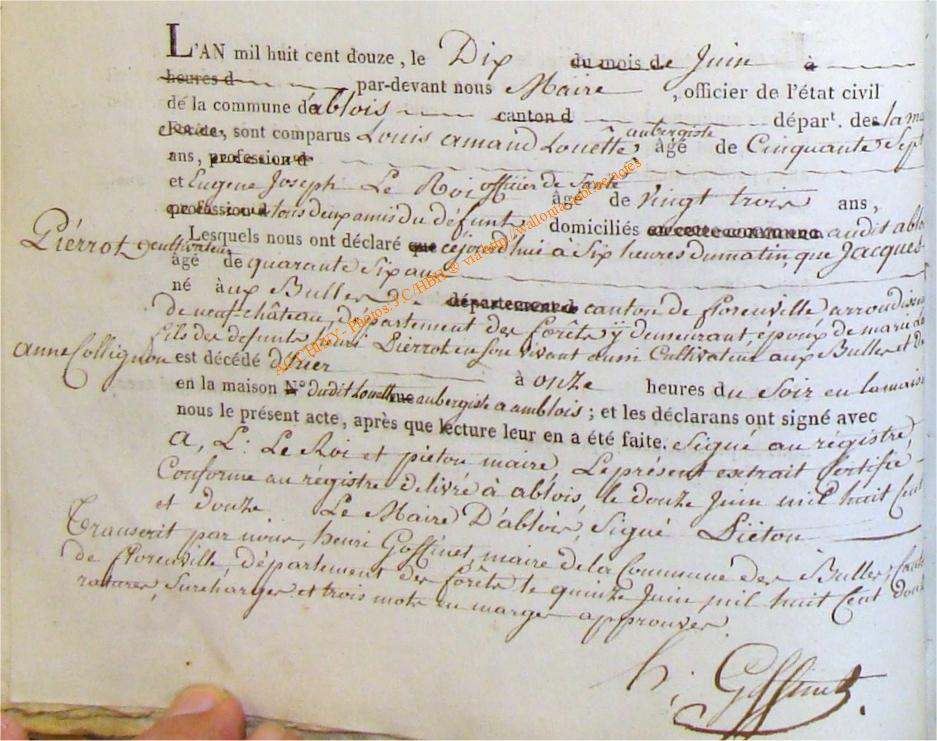 L'AN mil huit cent douze, le Dix du mois de Juin à
heures d par-devant nous Maire, officier de l'état civil
de la commune d'ablois canton d dépar.t des la ma
sont comparus Louis armand Louëtte, aubergiste, âgé de Cinquante Sept
ans, profession d
et Eugene Joseph Le Roi officier de Santé âgé de vingt trois ans,
profession d tous deux amis du défunt domiciliés en cette commune audit ablois
Lesquels nous ont déclaré que cejourd'hui à Six heures du matin, que Jacques
Piérrot, cultivateur
âgé de quarante Six ans
né aux Bulles département d canton de florenville arrondissem
de neufchâteau, département des forêts y demeurant, époux de marie
fils des défunts Pierrot en son vivant aussi Cultivateur aux Bulles et d'
anne Collignon
est décédé d'hier à onze heures du Soir en la maison
en la maison N° Dudit Louette rue aubergiste a amblois; et les déclarans ont signé avec
nous le présent acte, après que lecture leur en a été faite. Signé au régistre,
A, L: Le Roi et piéton maire, Le présent extrait Certifié
Conforme au régistre délivré à ablois, le douze Juin mil huit Cent
et douze Le Maire D'ablois, Signé Piéton
Transcrit par nous, henri Goffinet, maire de la Commune des Bulles,
de florenville, département des forêts le quinze Juin mil huit Cent douze
ratures, Surcharges et trois mots en marge approuvés
h: Goffinet